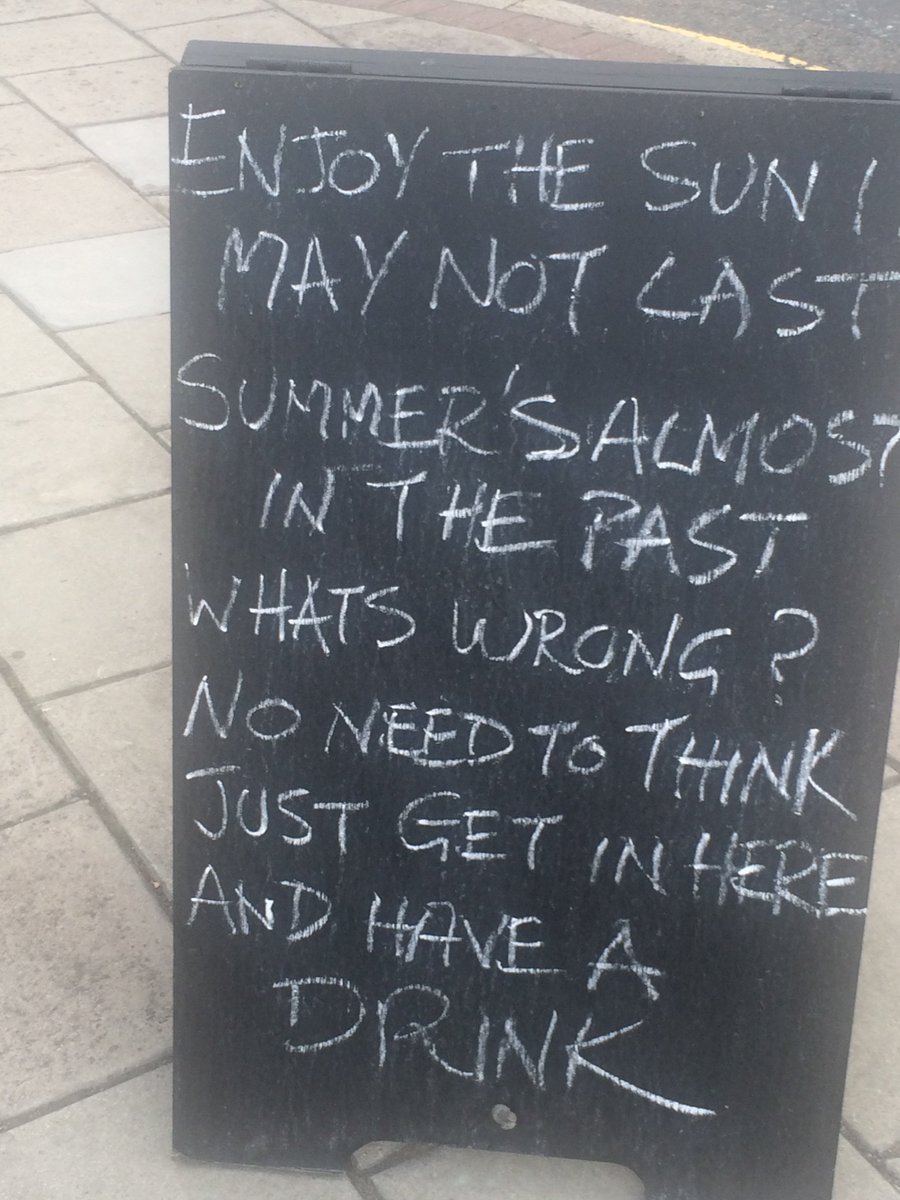 ENJOY THE SUN!
MAY NOT LAST
SUMMER'S ALMOST
IN THE PAST
WHATS WRONG?
NO NEED TO THINK
JUST GET IN HERE
AND HAVE A
DRINK